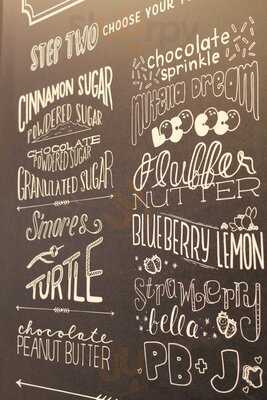 STEP TWO CHOOSE YOUR
CINNAMON SUGAR
POWDERED SUGAR
CHOCOLATE
POWDERED SUGAR
GRANULATED SUGAR
S'mores
TURTLE
chocolate
PEANUT BUTTER
chocolate
sprinkle
nutana dream
LOCO COCO
fluffer
NUTTER
BLUEBERRY LEMON
Strawberry
bella
PB + J